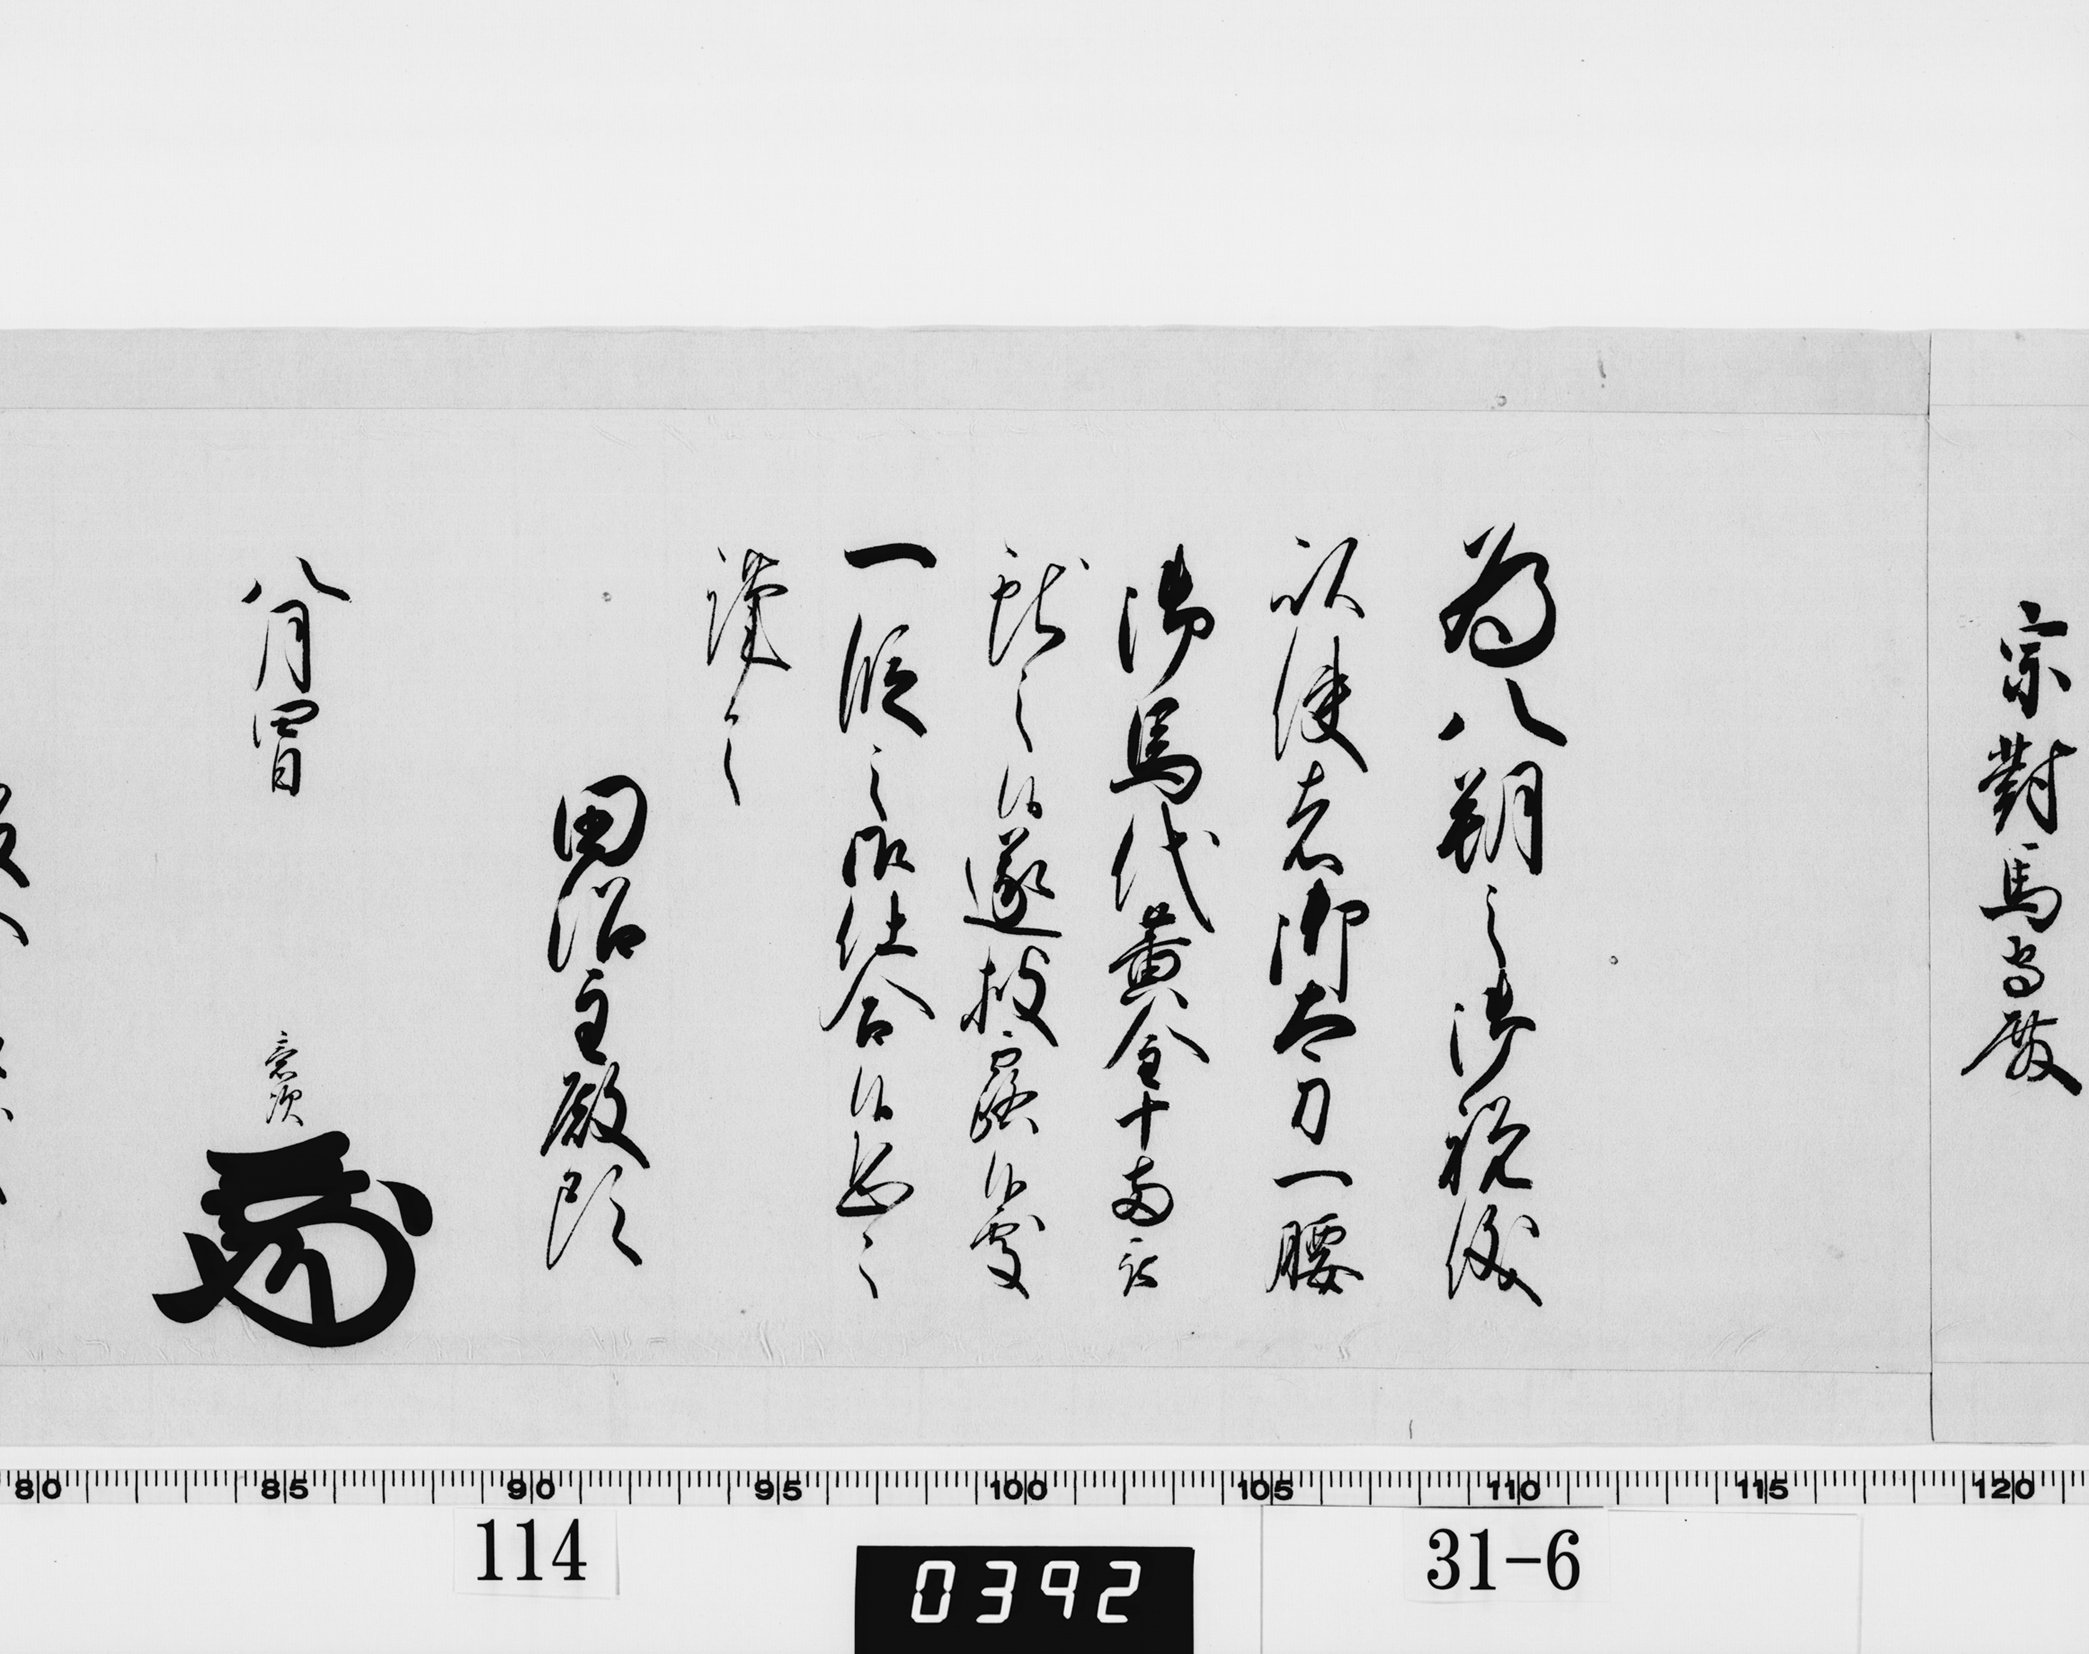 宗對馬守殿
為八朔之御祝儀
以使者御太刀一腰
御馬代黄金十両被
献之候遂披露候處
一段之御仕合候恐々
謹言
田沼主殿頭
八月四日
意次
80 85 90 95 100 105 110 115 120
114
0392
31-6